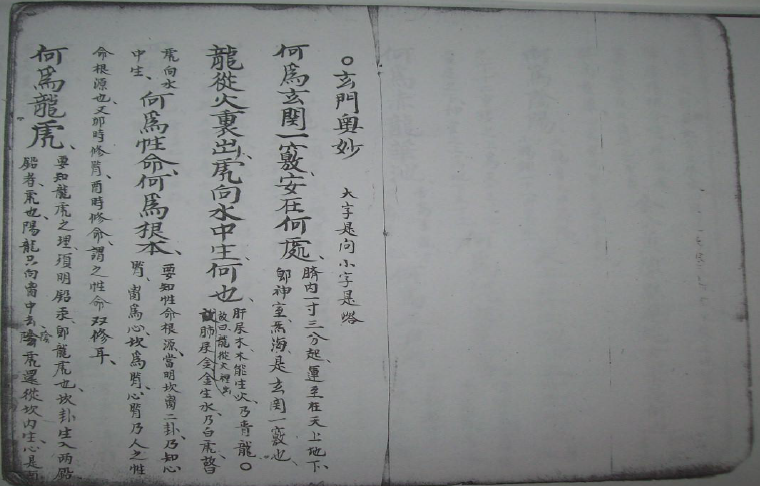 ○玄門奧妙　大字是问小字是答
何爲玄関一竅、安在何處、臍内一寸三分起、運至在天上地下、
即神室、炁海、是玄関一竅也、
龍從火裏出、虎向水中生、何也、肝屬木、木能生火、乃青龍○
故曰龍從火裡出
肺屬金、金生水、乃白虎
虎向水
中生、何爲性命、何爲根本、要知性命根源、當明坎离二卦、乃知心
腎、离爲心、坎爲腎、心腎乃人之性
命根源也、又卯時修腎、酉時修命、謂之性命双修耳、
何爲龍虎、要知龍虎之理、須明鉛汞、即龍虎也、坎卦生入兩鉛
鉛者、虎也、陽龍只向离中去、陰虎還從坎内生、心是